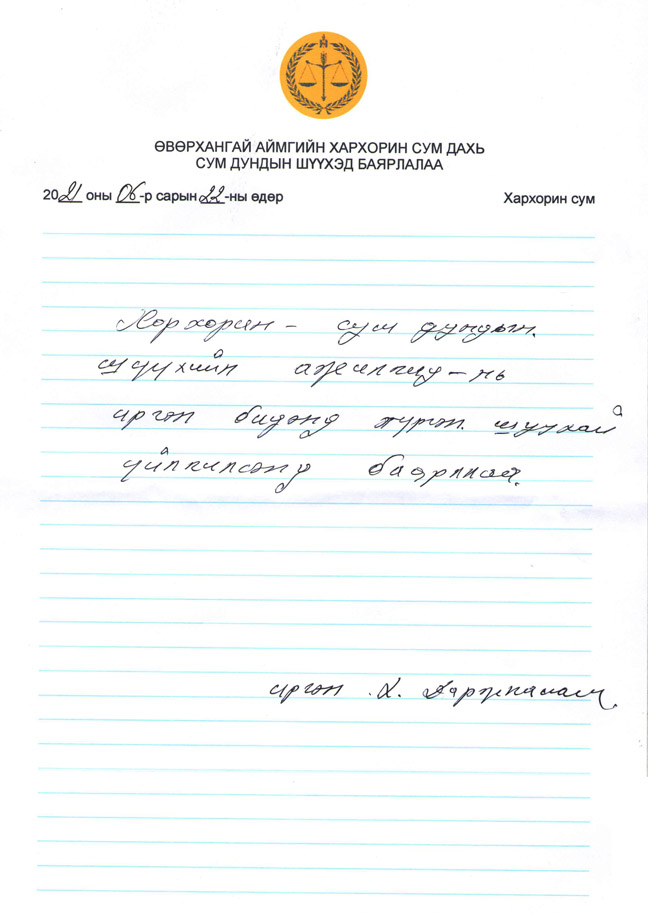 ӨВӨРХАНГАЙ АЙМГИЙН ХАРХОРИН СУМ ДАХЬ
СУМ ДУНДЫН ШҮҮХЭД БАЯРЛАЛАА
2021 оны 06-р сарын 22-ны өдөр Хархорин сум
Хархорин - сум дундын.
шүүхийн ажилчид - нь
иргэн бидэнд түргэн. шуурхай
үйлчилсэнд баярллаа.
иргэн .Х.